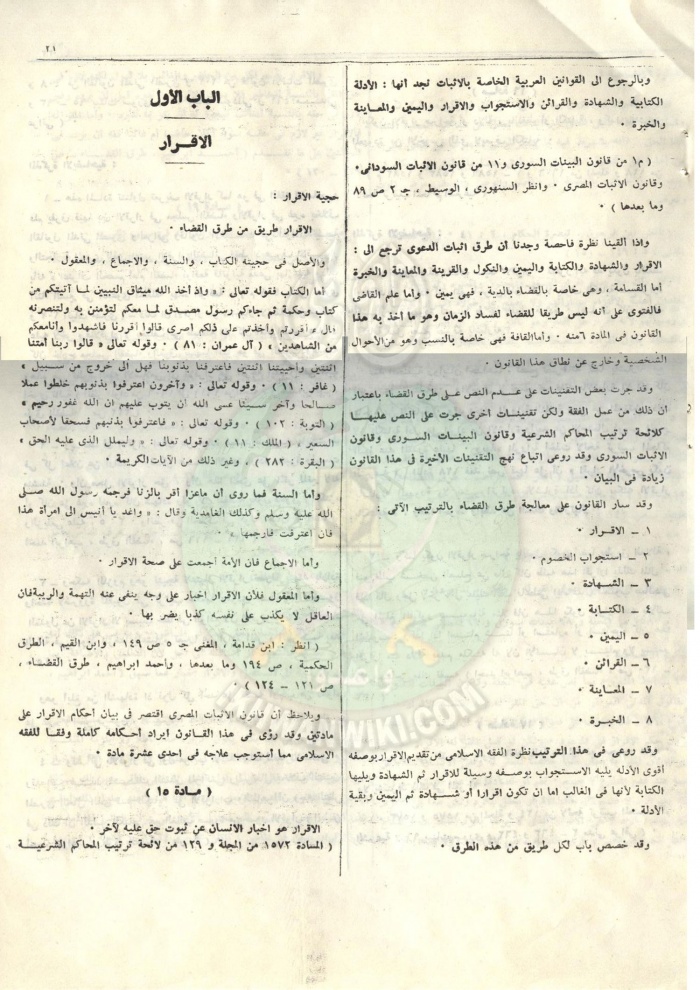 ٢١
وبالرجوع الى القوانين العربية الخاصة بالاثبات نجد أنها : الأدلة
الكتابية والشهادة والقرائن والاستجواب والاقرار واليمين والمعاينة
والخبرة ٠
( م١ من قانون البينات السورى و١١ من قانون الاثبات السودانى ٠
وقانون الاثبات المصرى ٠ وانظر السنهورى ، الوسيط ، جـ ٢ ص ٨٩
وما بعدها ) ٠
واذا ألقينا نظرة فاحصة وجدنا أن طرق اثبات الدعوى ترجع الى :
الاقرار والشهادة والكتابة واليمين والنكول والقرينة والمعاينة والخبرة
أما القسامة ، وهى خاصة بالقضاء بالدية ، فهى يمين ٠ وأما علم القاضى
فالفتوى على أنه ليس طريقا للقضاء لفساد الزمان وهو ما أخذ به هذا
القانون فى المادة ٦منه ٠ وأماالقافة فهى خاصة بالنسب وهو من الأحوال
الشخصية وخارج عن نطاق هذا القانون ٠
وقد جرت بعض التقنينات على عدم النص على طرق القضاء باعتبار
أن ذلك من عمل الفقة ولكن تقنينات اخرى جرت على النص عليها
كلائحة ترتيب المحاكم الشرعية وقانون البينات السورى وقانون
الاثبات السورى وقد روعى اتباع نهج التقنينات الأخيرة فى هذا القانون
زيادة فى البيان ٠
وقد سار القانون على معالجة طرق القضاء بالترتيب الآتى :
١ ــ الاقرار ٠
٢ ــ استجواب الخصوم ٠
٣ ــ الشهادة ٠
٤ ــ الكتابة ٠
٥ ــ اليمين ٠
٦ ــ القرائن ٠
٧ ــ المعاينة ٠
٨ ــ الخبرة ٠
وقد روعى فى هذا الترتيب نظرة الفقه الاسلامى من تقديم الاقرار بوصفه
أقوى الأدله يليه الاستجواب بوصفه وسيلة للاقرار ثم الشهادة ويليها
الكتابة لأنها فى الغالب اما ان تكون اقرارا أو شهادة ثم اليمين وبقية
الأدلة ٠
وقد خصص باب لكل طريق من هذه الطرق ٠
الباب الأول
الاقرار
حجية الاقرار :
الاقرار طريق من طرق القضاء ٠
والأصل فى حجيته الكتاب ، والسنة ، والاجماع ، والمعقول ٠
أما الكتاب فقوله تعالى : « واذ أخذ الله ميثاق النبيين لما آتيتكم من
كتاب وحكمة ثم جاءكم رسول مصدق لما معكم لتؤمنن به ولتنصرنه
قال أأقررتم وأخذتم على ذلكم اصرى قالوا أقررنا فاشهدوا وأنامعكم
من الشاهدين » ( آل عمران : ٨١ ) ٠ وقوله تعالى « قالوا ربنا أمتنا
اثنتين وأحييتنا اثنتين فاعترفنا بذنوبنا فهل الى خروج من سبيل »
( غافر : ١١ ) ٠ وقوله تعالى : « وآخرون اعترفوا بذنوبهم خلطوا عملا
صالحا وآخر سيئا عسى الله ان يتوب عليهم ان الله غفور رحيم »
( التوبة : ١٠٢ ) ٠ وقوله تعالى : « فاعترفوا بذنبهم فسحقا لأصحاب
السعير ، ( الملك : ١١ ) ٠ وقوله تعالى : « وليملل الذى عليه الحق »
( البقرة : ٢٨٢ ) ، وغير ذلك من الآيات الكريمة ٠
وأما السنة فما روى أن ماعزا أقر بالزنا فرجمه رسول الله صلى
الله عليه وسلم وكذلك الغامدية وقال : « واغد يا أنيس الى امرأة هذا
فان اعترفت فارجمها » ٠
وأما الاجماع فان الأمة أجمعت على صحة الاقرار ٠
وأما المعقول فلأن الاقرار اخبار على وجه ينفى عنه التهمة والريبةفان
العاقل لا يكذب على نفسه كذبا يضر بها ٠
( انظر : ابن قدامة ، المغنى جـ ٥ ص ١٤٩ ، وابن القيم ، الطرق
الحكمية ، ص ١٩٤ وما بعدها ، وأحمد ابراهيم ، طرق القضاء ،
ص ١٢١ ــ ١٢٤ ) ٠
ويلاحظ أن قانون الاثبات المصرى اقتصر فى بيان أحكام الاقرار على
مادتين وقد رؤى فى هذا القانون ايراد أحكامه كاملة وفقا للفقه
الاسلامى مما أستوجب علاجه فى احدى عشرة مادة ٠
( مادة ١٥ )
الاقرار هو اخبار الانسان عن ثبوت حق عليه لآخر ٠
( المادة ١٥٧٢ من المجلة و ١٢٩ من لائحة ترتيب المحاكم الشرعية